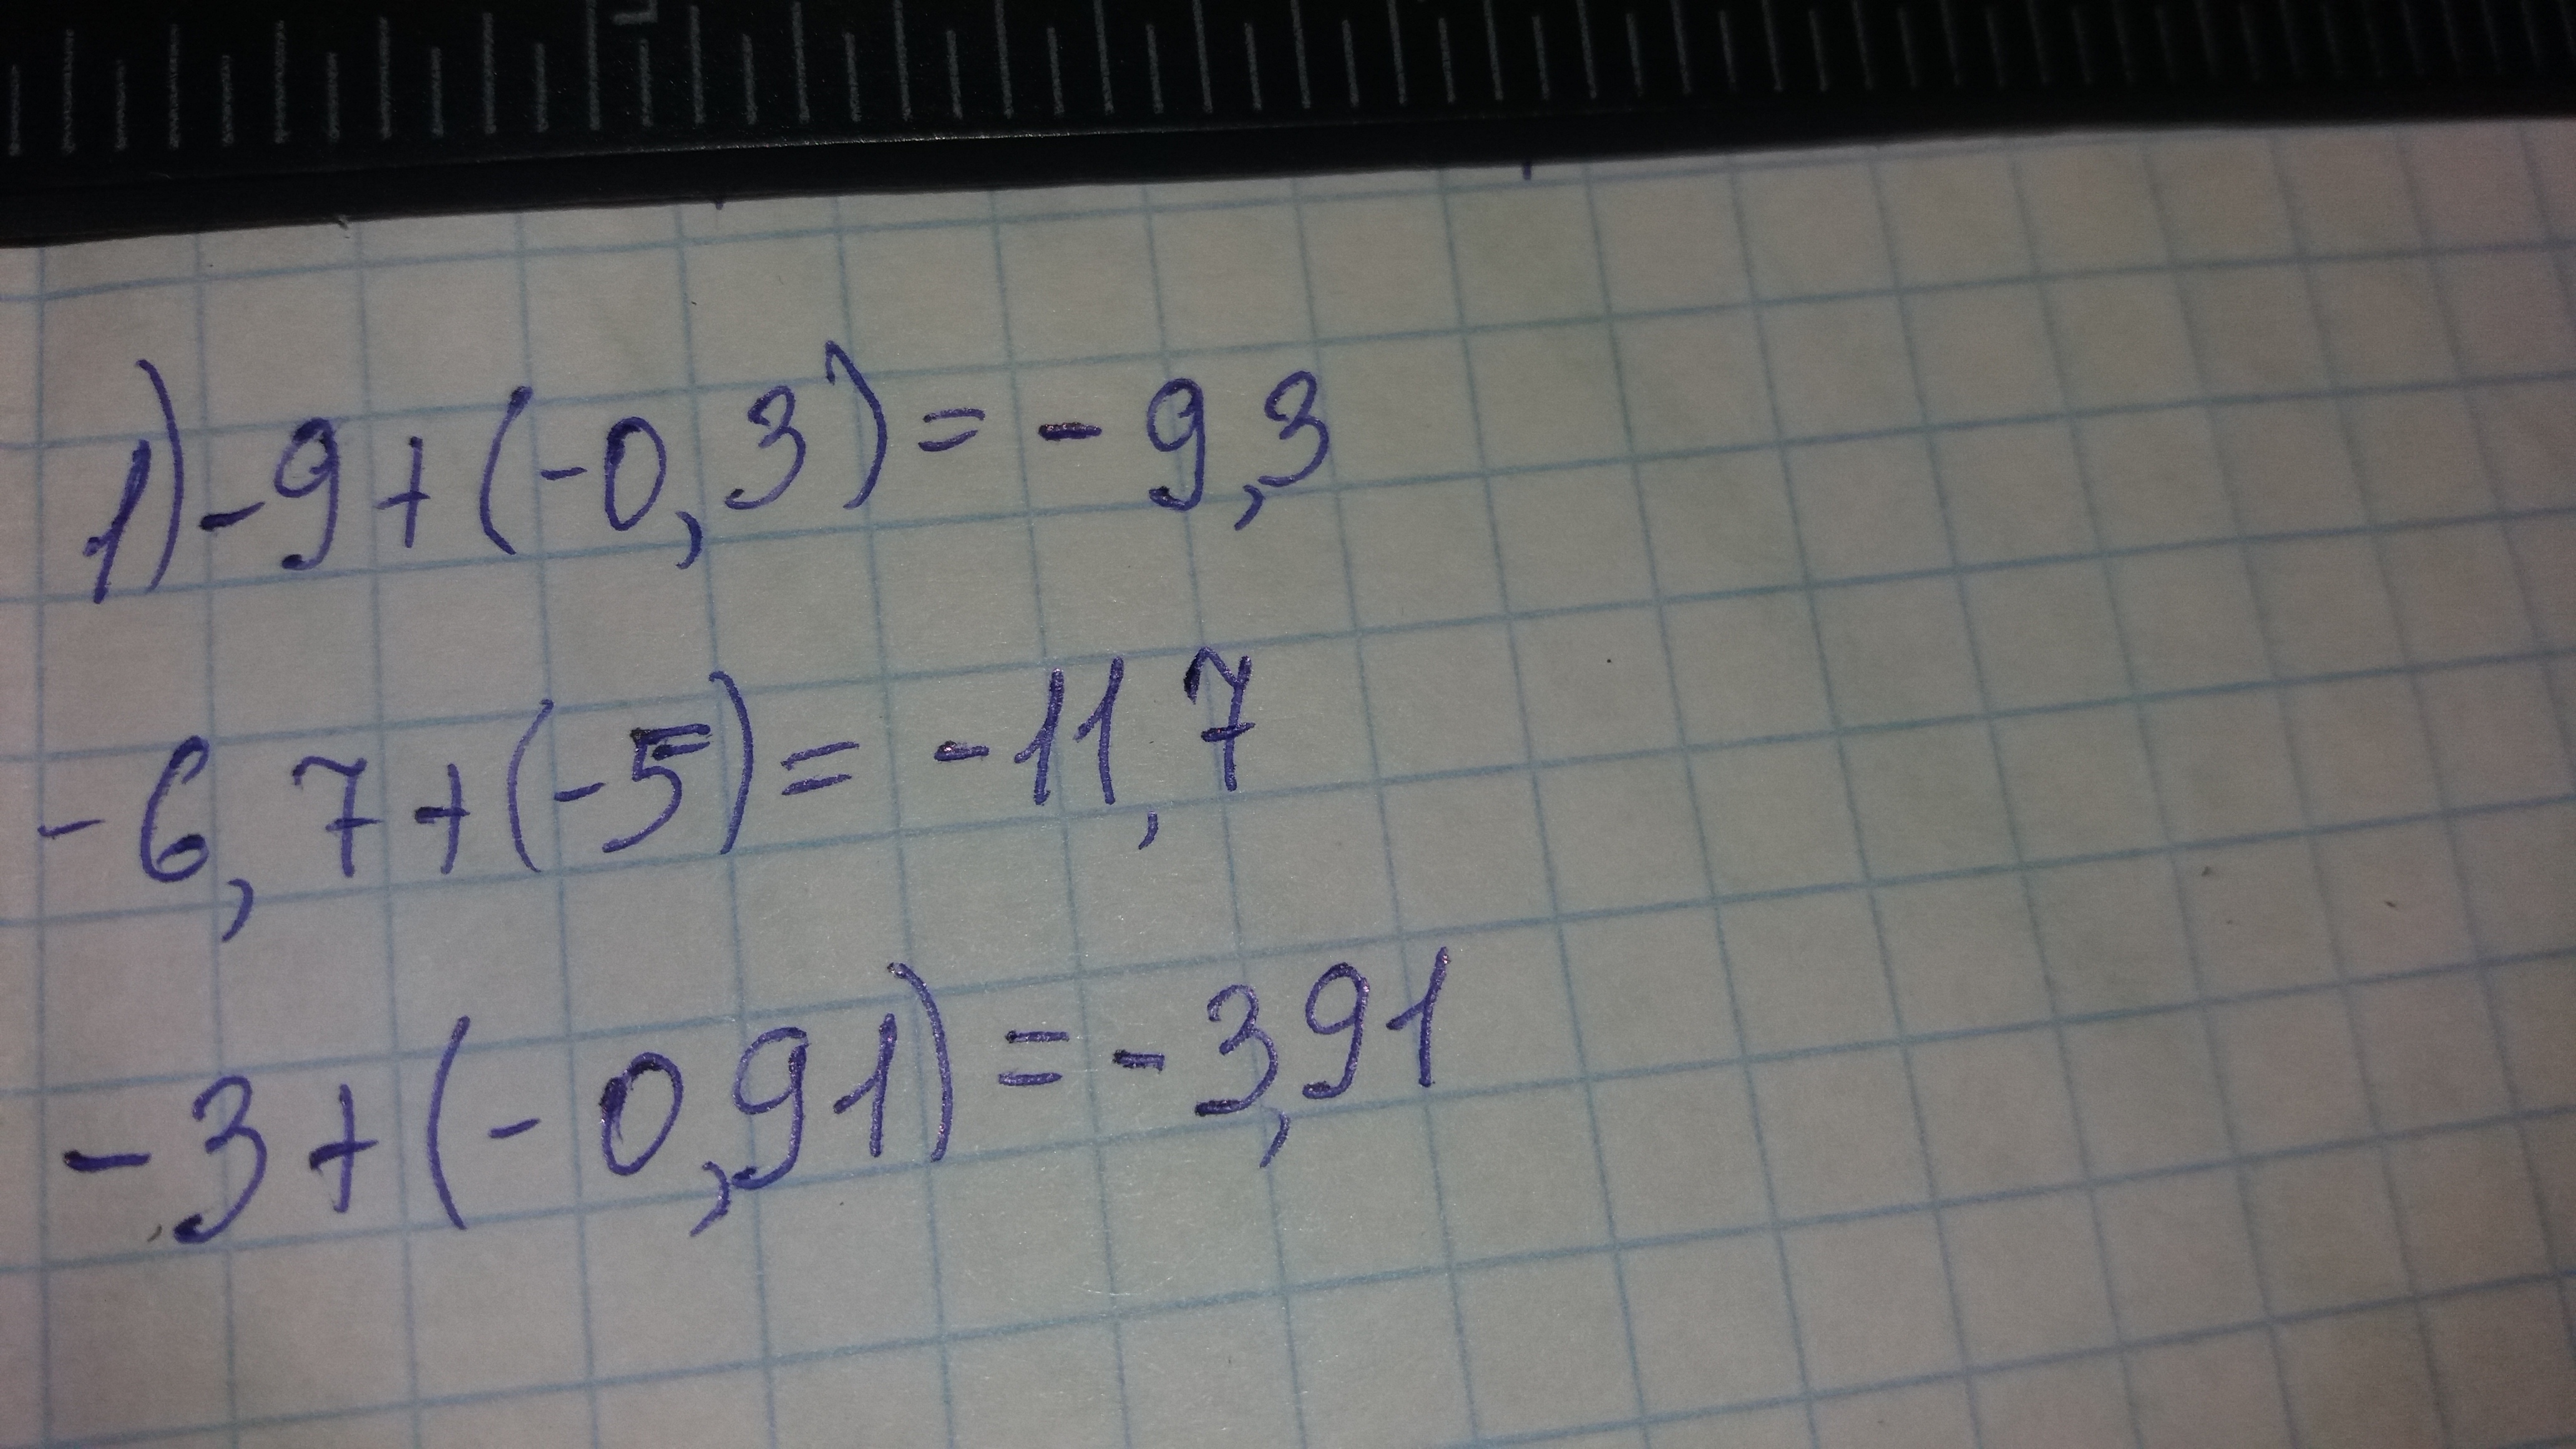 1) -9+(-0,3)= -9,3
-6,7+(-5)= -11,7
-3+(-0,91)= -3,91